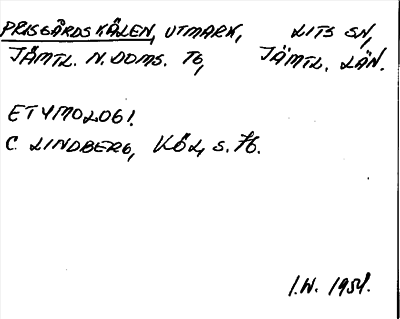 PRISGÅRDSKÄLEN, UTMARK, LITS SN,
JÄMTL. N. DOMS. TG, JÄMTL. LÄN.
ETYMOLOGI.
C. LINDBERG, KÖL, S. 76.
I.W. 1954.